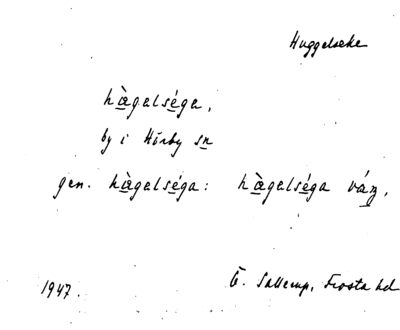 Huggelseke
hàgelséga,
by i Hörby sn
gen. hàgelséga: hàgelséga vág.
1947. Ö. Sallerup, Frosta hd